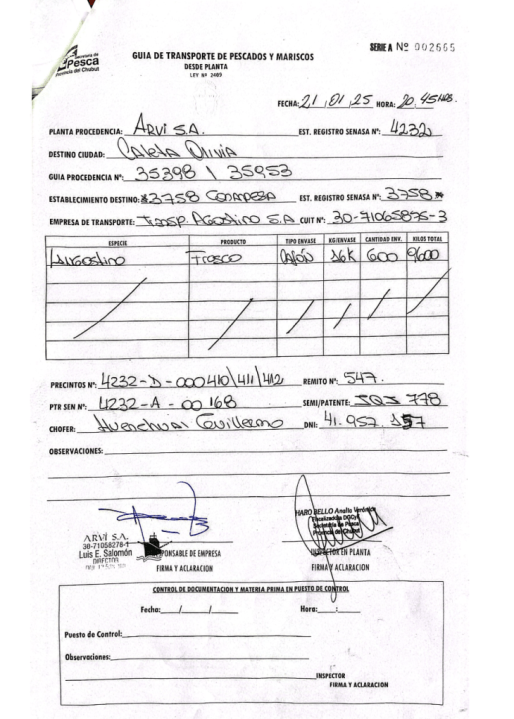 Secretaría de
Pesca
Provincia del Chubut
GUIA DE TRANSPORTE DE PESCADOS Y MARISCOS
DESDE PLANTA
LEY Nº 2409
SERIE A Nº 002665
FECHA: 21 / 01 / 25 HORA: 20.45 HRS.
PLANTA PROCEDENCIA: ARVI S.A. EST. REGISTRO SENASA Nº: 4232
DESTINO CIUDAD: CALETA OLIVIA
GUIA PROCEDENCIA Nº: 35398 \ 35953
ESTABLECIMIENTO DESTINO: *3758 CONARPESA EST. REGISTRO SENASA Nº: 3758*
EMPRESA DE TRANSPORTE: TRASP. AGOSTINO S.A CUIT Nº: 30-71065875-3
ESPECIE PRODUCTO TIPO ENVASE KG/ENVASE CANTIDAD ENV. KILOS TOTAL
LANGOSTINO FRESCO CAJÓN 16K 600 9600
PRECINTOS Nº: 4232-D-000410\411\412 REMITO Nº: 547.
PTR SEN Nº: 4232-A-00168 SEMI/PATENTE: 778
CHOFER: Guillermo DNI: 41.957.157
OBSERVACIONES:
ARVI S.A.
30-71058278-1
Luis E. Salomón
DIRECTOR
RESPONSABLE DE EMPRESA
FIRMA Y ACLARACION
HARO BELLO Analía Verónica
Fiscalizadora DGCyF
Secretaría de Pesca
Provincia del Chubut
INSPECTOR EN PLANTA
FIRMA Y ACLARACION
CONTROL DE DOCUMENTACION Y MATERIA PRIMA EN PUESTO DE CONTROL
Fecha: / / Hora: :
Puesto de Control:
Observaciones:
INSPECTOR
FIRMA Y ACLARACION